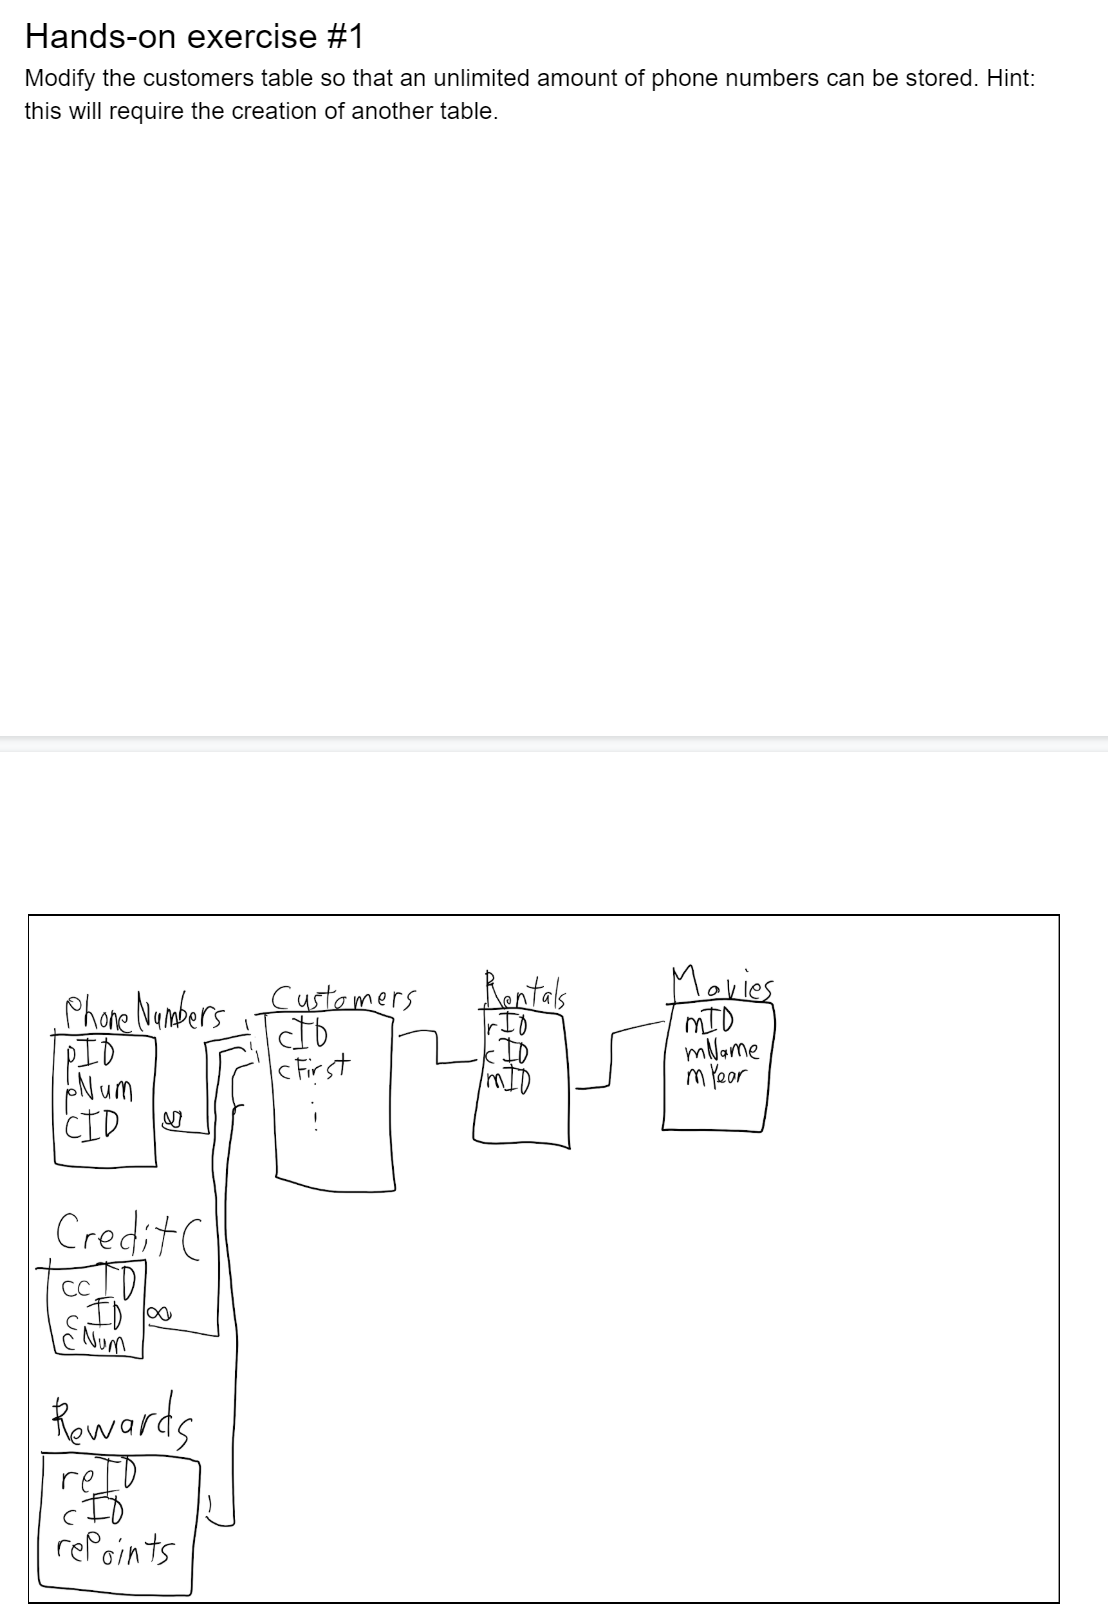 Hands-on exercise #1
Modify the customers table so that an unlimited amount of phone numbers can be stored. Hint:
this will require the creation of another table.
Phone Numbers
pID
pNum
CID
∞
Customers
1
1
1
cID
cFirst
Rentals
rID
cID
mID
Movies
mID
mName
mYear
CreditC
ccID
cID
cNum
∞
Rewards
reID
cID
rePoints
1